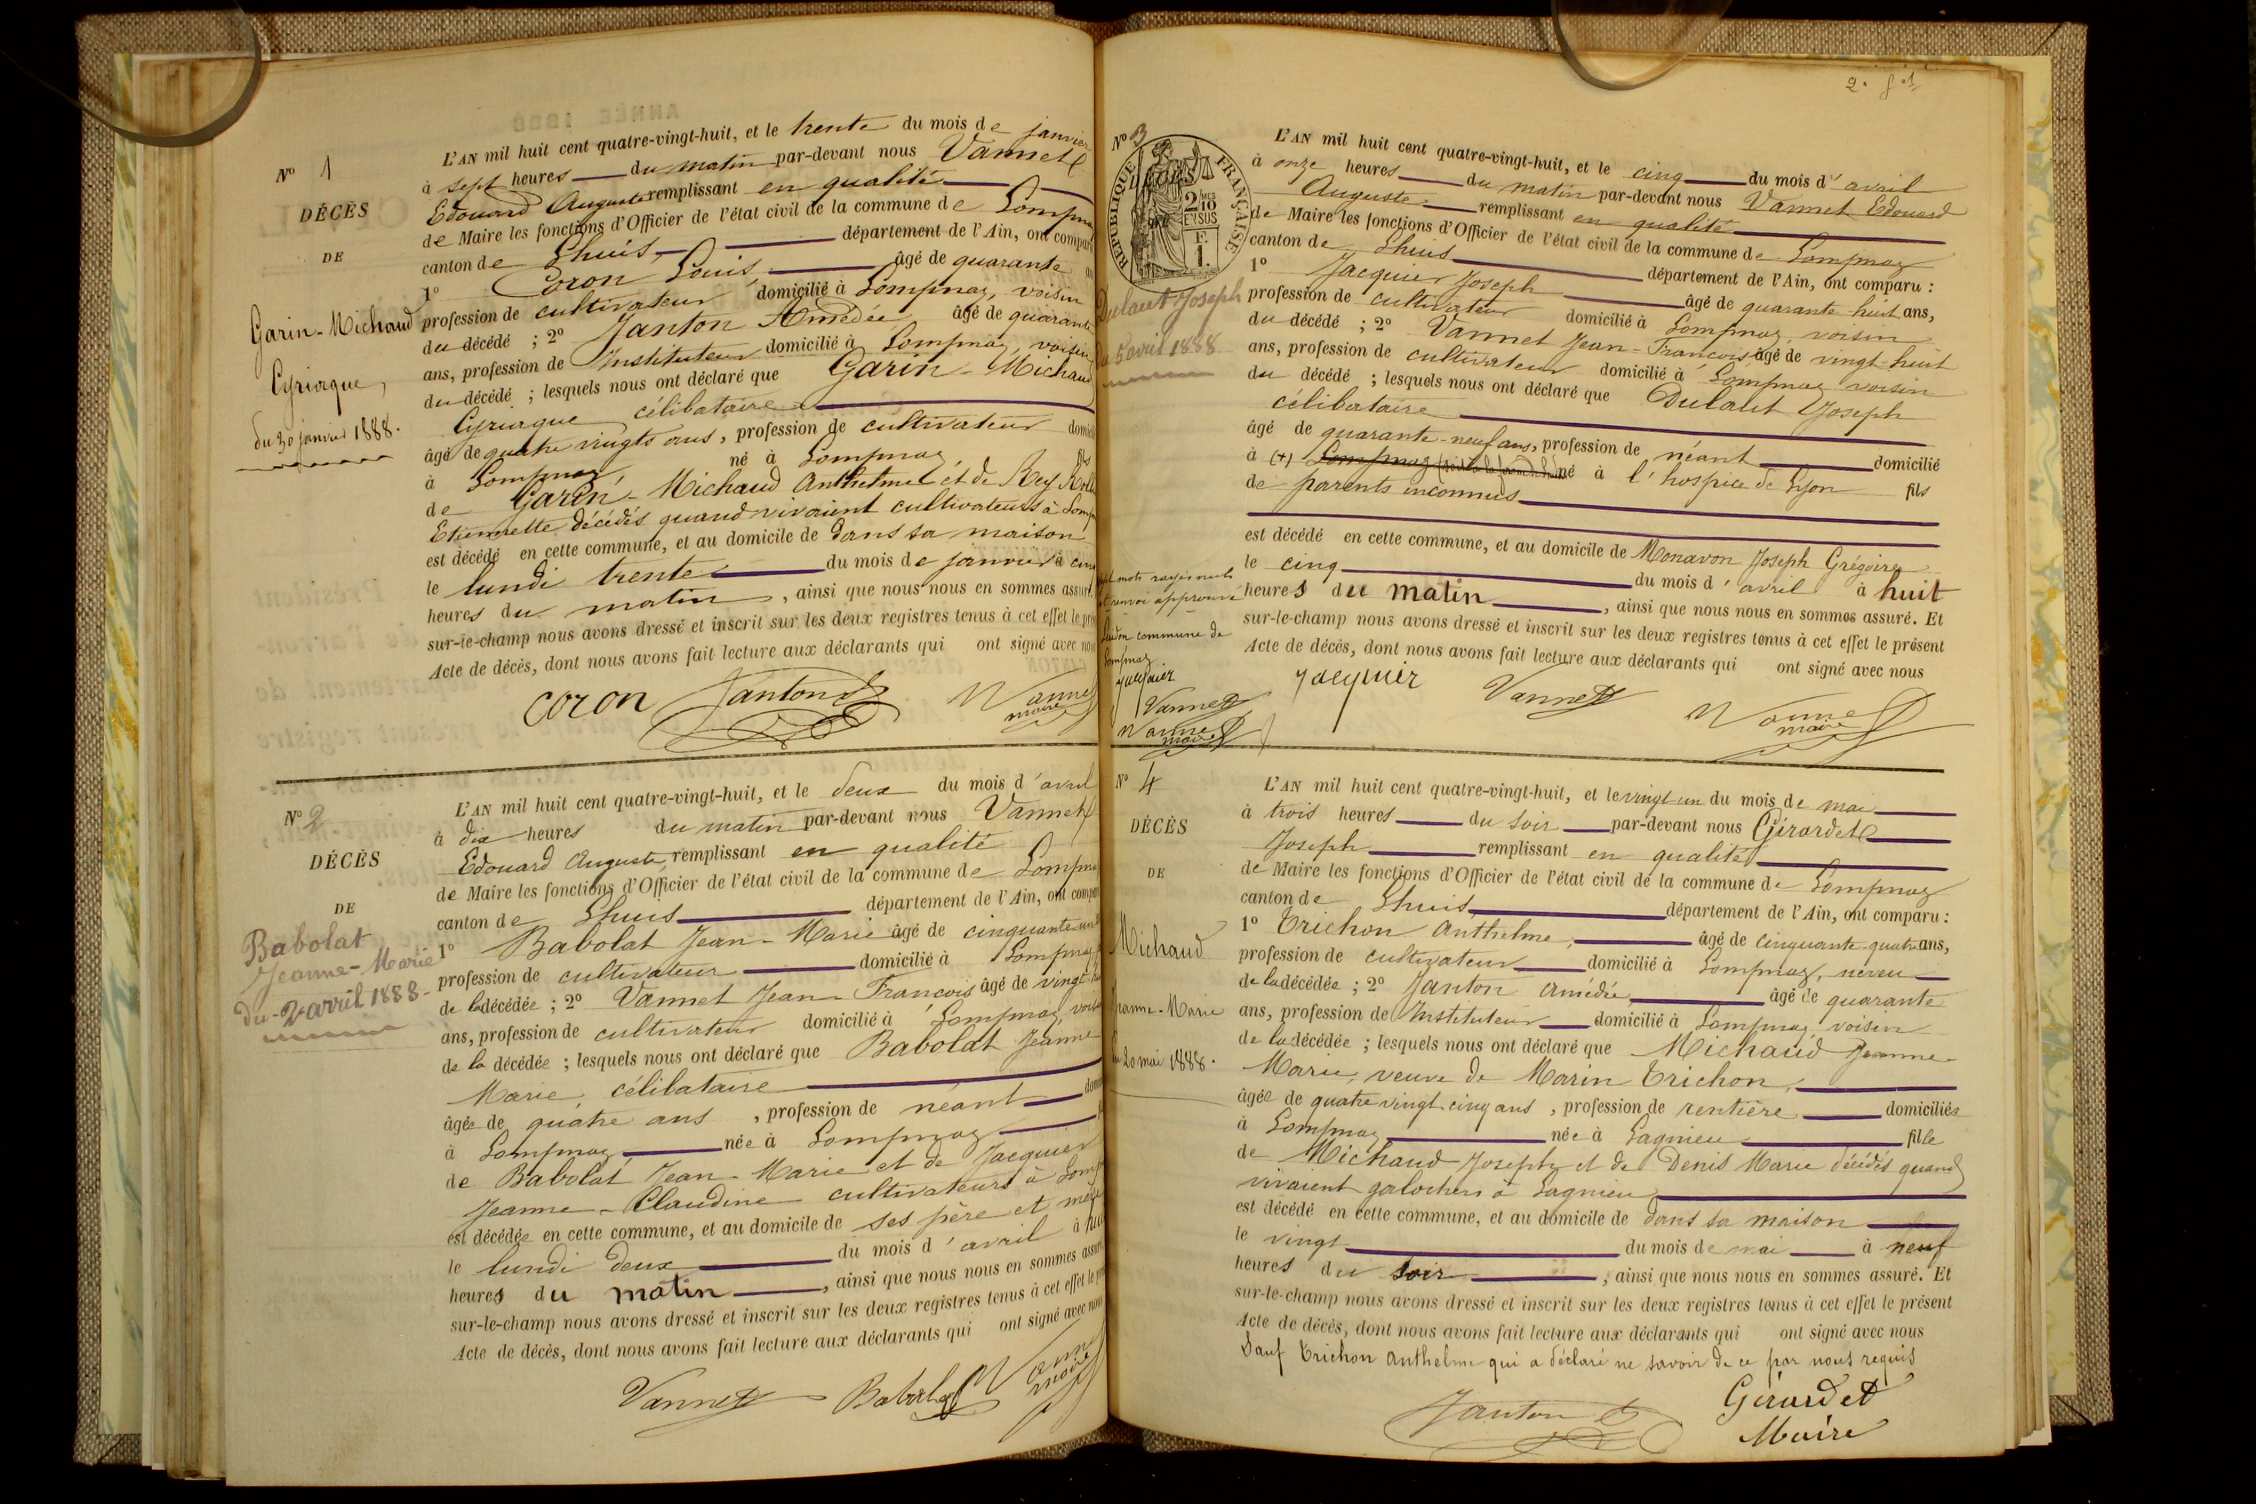 Nº 1
DÉCÈS
DE
Garin-Michaud
Cyriaque,
du 30 janvier 1888.
L'AN mil huit cent quatre-vingt-huit, et le trente du mois de janvier
à sept heures du matin par-devant nous Vannet
Edouard Auguste remplissant en qualité
de Maire les fonctions d'Officier de l'état civil de la commune de Lompnaz
canton de Lhuis département de l'Ain, ont compar
1º Coron Louis, âgé de quarante an
profession de cultivateur domicilié à Lompnaz, voisin
du décédé ; 2º Janton Amédée, âgé de quarante
ans, profession de Instituteur domicilié à Lompnaz, voisin
du décédé ; lesquels nous ont déclaré que Garin-Michaud
Cyriaque célibataire
âgé de quatre vingts ans, profession de cultivateur domicilié
à Lompnaz, né à Lompnaz fils
de Garin-Michaud Anthelme et de Rey
Etiennette décédés quand vivaient cultivateurs à Lomp
est décédé en cette commune, et au domicile de dans sa maison
le lundi trente du mois de janvier à cinq
heures du matin, ainsi que nous nous en sommes assuré.
sur-le-champ nous avons dressé et inscrit sur les deux registres tenus à cet effet le prés
Acte de décès, dont nous avons fait lecture aux déclarants qui ont signé avec nous
Coron Janton Vannet
maire
Nº 2
DÉCÈS
DE
Babolat
Jeanne-Marie
du 2 avril 1888-
L'AN mil huit cent quatre-vingt-huit, et le deux du mois d'avril
à dix heures du matin par-devant nous Vannet
Edouard Auguste remplissant en qualité
de Maire les fonctions d'Officier de l'état civil de la commune de Lompna
canton de Lhuis département de l'Ain, ont compar
1º Babolat Jean-Marie âgé de cinquante-un
profession de cultivateur domicilié à Lompnaz
de la décédée ; 2º Vannet Jean-François âgé de vingt-h
ans, profession de cultivateur domicilié à Lompnaz, voisin
de la décédée ; lesquels nous ont déclaré que Babolat Jeanne
Marie, célibataire
âgée de quatre ans, profession de néant domi
à Lompnaz née à Lompnaz
de Babolat Jean-Marie et de Jacquier
Jeanne-Claudine cultivateurs à Lomp
est décédée en cette commune, et au domicile de ses père et mère
le lundi deux du mois d'avril à huit
heures du matin, ainsi que nous nous en sommes assuré
sur-le-champ nous avons dressé et inscrit sur les deux registres tenus à cet effet le pré
Acte de décès, dont nous avons fait lecture aux déclarants qui ont signé avec nous
Vannet Babolat Vannet
maire
2. f
Nº 3
RÉPUBLIQUE FRANÇAISE
2/10
EN SUS
F.
1.
Dulaut Joseph
du 5 avril 1888
L'AN mil huit cent quatre-vingt-huit, et le cinq du mois d'avril
à onze heures du matin par-devant nous Vannet Edouard
Auguste remplissant en qualité
de Maire les fonctions d'Officier de l'état civil de la commune de Lompnaz
canton de Lhuis département de l'Ain, ont comparu :
1º Jacquier Joseph âgé de quarante-huit ans,
profession de cultivateur domicilié à Lompnaz, voisin
du décédé ; 2º Vannet Jean-François âgé de vingt-huit
ans, profession de cultivateur domicilié à Lompnaz voisin
du décédé ; lesquels nous ont déclaré que Dulaut Joseph
célibataire
âgé de quarante-neuf ans, profession de néant domicilié
à (+) Lompnaz né à l'hospice de Lyon fils
de parents inconnus
est décédé en cette commune, et au domicile de Monavon Joseph Grégoire
le cinq du mois d'avril à huit
heures du matin, ainsi que nous nous en sommes assuré. Et
sur-le-champ nous avons dressé et inscrit sur les deux registres tenus à cet effet le présent
Acte de décès, dont nous avons fait lecture aux déclarants qui ont signé avec nous
mots rayés nuls
et renvoi approuvé
commune de
Lompnaz
Jacquier
Vannet
Vannet
maire
Jacquier Vannet Vannet
maire
Nº 4
DÉCÈS
DE
Michaud
Jeanne-Marie
du 20 mai 1888.
L'AN mil huit cent quatre-vingt-huit, et le vingt un du mois de mai
à trois heures du soir par-devant nous Girardet
Joseph remplissant en qualité
de Maire les fonctions d'Officier de l'état civil de la commune de Lompnaz
canton de Lhuis département de l'Ain, ont comparu :
1º Trichon Anthelme, âgé de cinquante-quatre ans,
profession de cultivateur domicilié à Lompnaz, neveu
de la décédée ; 2º Janton Amédée âgé de quarante
ans, profession de Instituteur domicilié à Lompnaz, voisin
de la décédée ; lesquels nous ont déclaré que Michaud Jeanne-
Marie, veuve de Marin Trichon,
âgée de quatre vingt cinq ans, profession de rentière domiciliée
à Lompnaz née à Lagnieu fille
de Michaud Joseph et de Denis Marie décédés quand
vivaient galochers à Lagnieu
est décédé en cette commune, et au domicile de dans sa maison
le vingt du mois de mai à neuf
heures du soir, ainsi que nous nous en sommes assuré. Et
sur-le-champ nous avons dressé et inscrit sur les deux registres tenus à cet effet le présent
Acte de décès, dont nous avons fait lecture aux déclarants qui ont signé avec nous
Sauf Trichon Anthelme qui a déclaré ne savoir de ce par nous requis
Janton Girardet
Maire